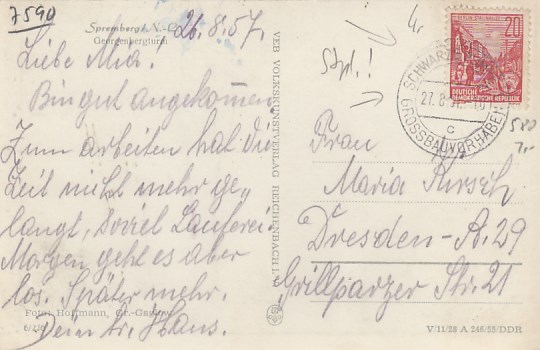 7590
Spremberg N.-L.
Georgenbergturm
26.8.57.
Liebe Mia.
Bin gut angekommen
Zum arbeiten hat die
Zeit nicht mehr ge„
langt, soviel Lauferei.
Morgen geht es aber
los. Später mehr.
Dein tr. Hans.
Foto: Hoffmann, Gr.-
6/
VEB VOLKSKUNSTVERLAG REICHENBACH I.
Stpl.!
20
DEUTSCHE
DEMOKRATISCHE REPUBLIK
SCHWARZE
27.8.
GROSSBAUVORHABEN
c
Frau
Maria Kirsch
Dresden-A. 29
Grillparzer Str. 21
V/11/28 A 246/55/DDR